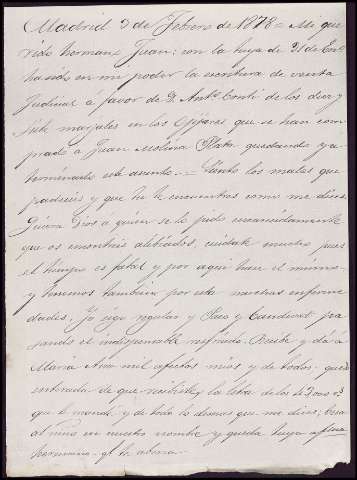 Madrid 3 de Febrero de 1878 = Mi que
rido hermano Juan: con la tuya de 21 de En.º
ha sido en mi poder la escritura de venta
Judicial á favor de D. Ant.º Conti de los diez y
siete marjales en los Ogijares que se han com
prado á Juan Molina Plata quedando ya
terminado este asunto. = Siento los males que
padeceis y que no te encuentres como me dices.
Quiera Dios á quien se lo pido encarecidamente
que os encontreis aliviados, cuidate mucho pues
el tiempo es fatal y por aqui hace el mismo
y tenemos tambien por esto nuestras enferme
dades. Yo sigo regular y Paco y Candivot pa
sando el indispensable resfriado. Recibe y da á
Maria Ana mil afectos mios y de todos. quedo
enterada de que recibiste la letra de los 43.000 r.s
que te mandé y de todo lo demas que me dices; besa
al niño en nuestro nombre y queda tuya afma
hermana q.e te adora =